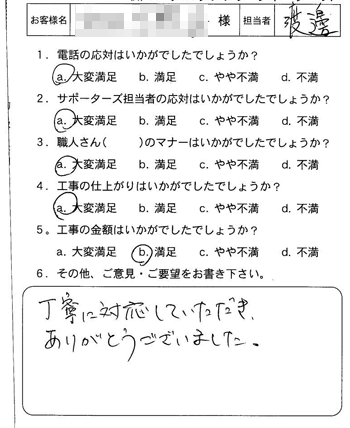 お客様名 様 担当者 渡邊
1．電話の応対はいかがでしたでしょうか？
a. 大変満足 b. 満足 c. やや不満 d. 不満
2．サポーターズ担当者の応対はいかがでしたでしょうか？
a. 大変満足 b. 満足 c. やや不満 d. 不満
3．職人さん(　　　)のマナーはいかがでしたでしょうか？
a. 大変満足 b. 満足 c. やや不満 d. 不満
4．工事の仕上がりはいかがでしたでしょうか？
a. 大変満足 b. 満足 c. やや不満 d. 不満
5。工事の金額はいかがでしたでしょうか？
a. 大変満足 b. 満足 c. やや不満 d. 不満
6．その他、ご意見・ご要望をお書き下さい。
丁寧に対応していただき、
ありがとうございました。